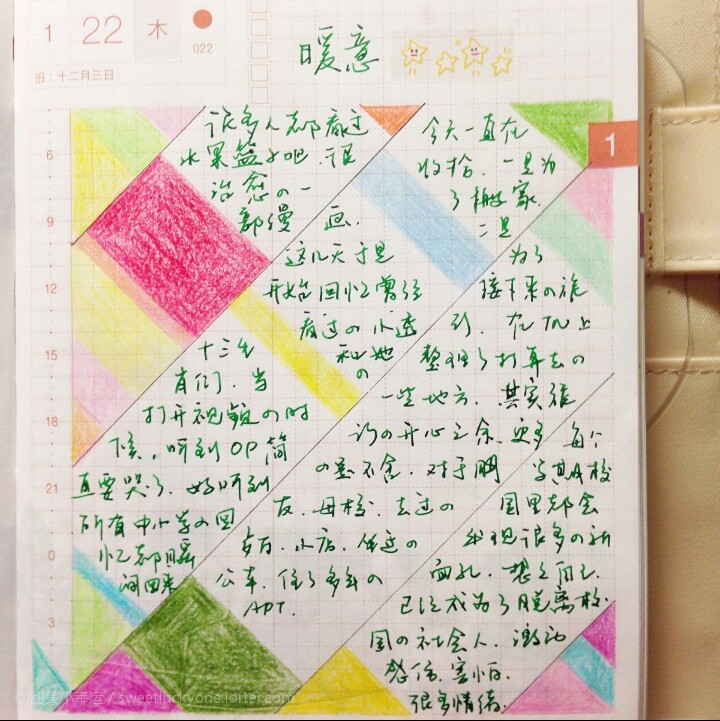 1 22 木
022
旧：十二月三日
暖意
许多人都看过
水果篮子吧．很
治愈の一
部漫画．
这几天于是
开始回忆曾经
看过の小透
和她
の
十二生
肖们．当
打开视频の时
候，听到OP简
直要哭了．好听到
所有中小学の回
忆都朋
涌回来
今天一直在
收拾．一是为
了搬家．
二是
为了
接下来の旅
行．在TN上
整理了打算去の
一些地方．其实旅
行の开心之余．更多
の是不舍．对于朋
友．母校．去过の
步行．小店．坐过の
公车．住了多年の
APT．
每个
学期校
园里都会
出现很多の新
面孔．想之用己．
已经成为了脱离校
园の社会人．激动
悲伤．害怕．
很多情绪．
1
6
9
12
15
18
21
0
3
甜美小幸运 / sweetluckyone.lofter.com